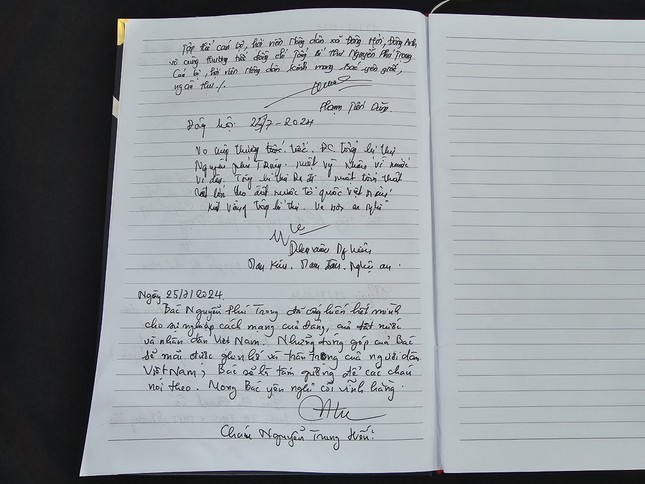 Tập thể cán bộ, hội viên Nông dân xã Đông Hội, Đông Anh,
vô cùng thương tiếc đồng chí Tổng Bí thư Nguyễn Phú Trọng
Cán bộ, hội viên Nông dân kính mong Bác yên giấc,
ngàn thu./.
Phạm Tiến Dũng.
Đông hội: 25/7-2024
Vô cùng thương tiếc Bác. ĐC tổng bí thư
Nguyễn phú Trọng. một vỹ nhân vì nước
vì dân. Tổng bí thư Ra đi một tổn thất
lớn cho đất nước tổ quốc Việt Nam
Nghệ an.
Ngày 25/7/2024.
Bác Nguyễn Phú Trọng đã cống hiến hết mình
cho sự nghiệp cách mạng của đảng, của đất nước
và nhân dân Việt Nam. Những đóng góp của Bác
sẽ mãi được ghi nhớ và trân trọng của người dân
Việt Nam; Bác sẽ là tấm gương để các cháu
noi theo. Mong Bác yên nghỉ cõi vĩnh hằng.
Cháu Nguyễn Trung Hiếu!